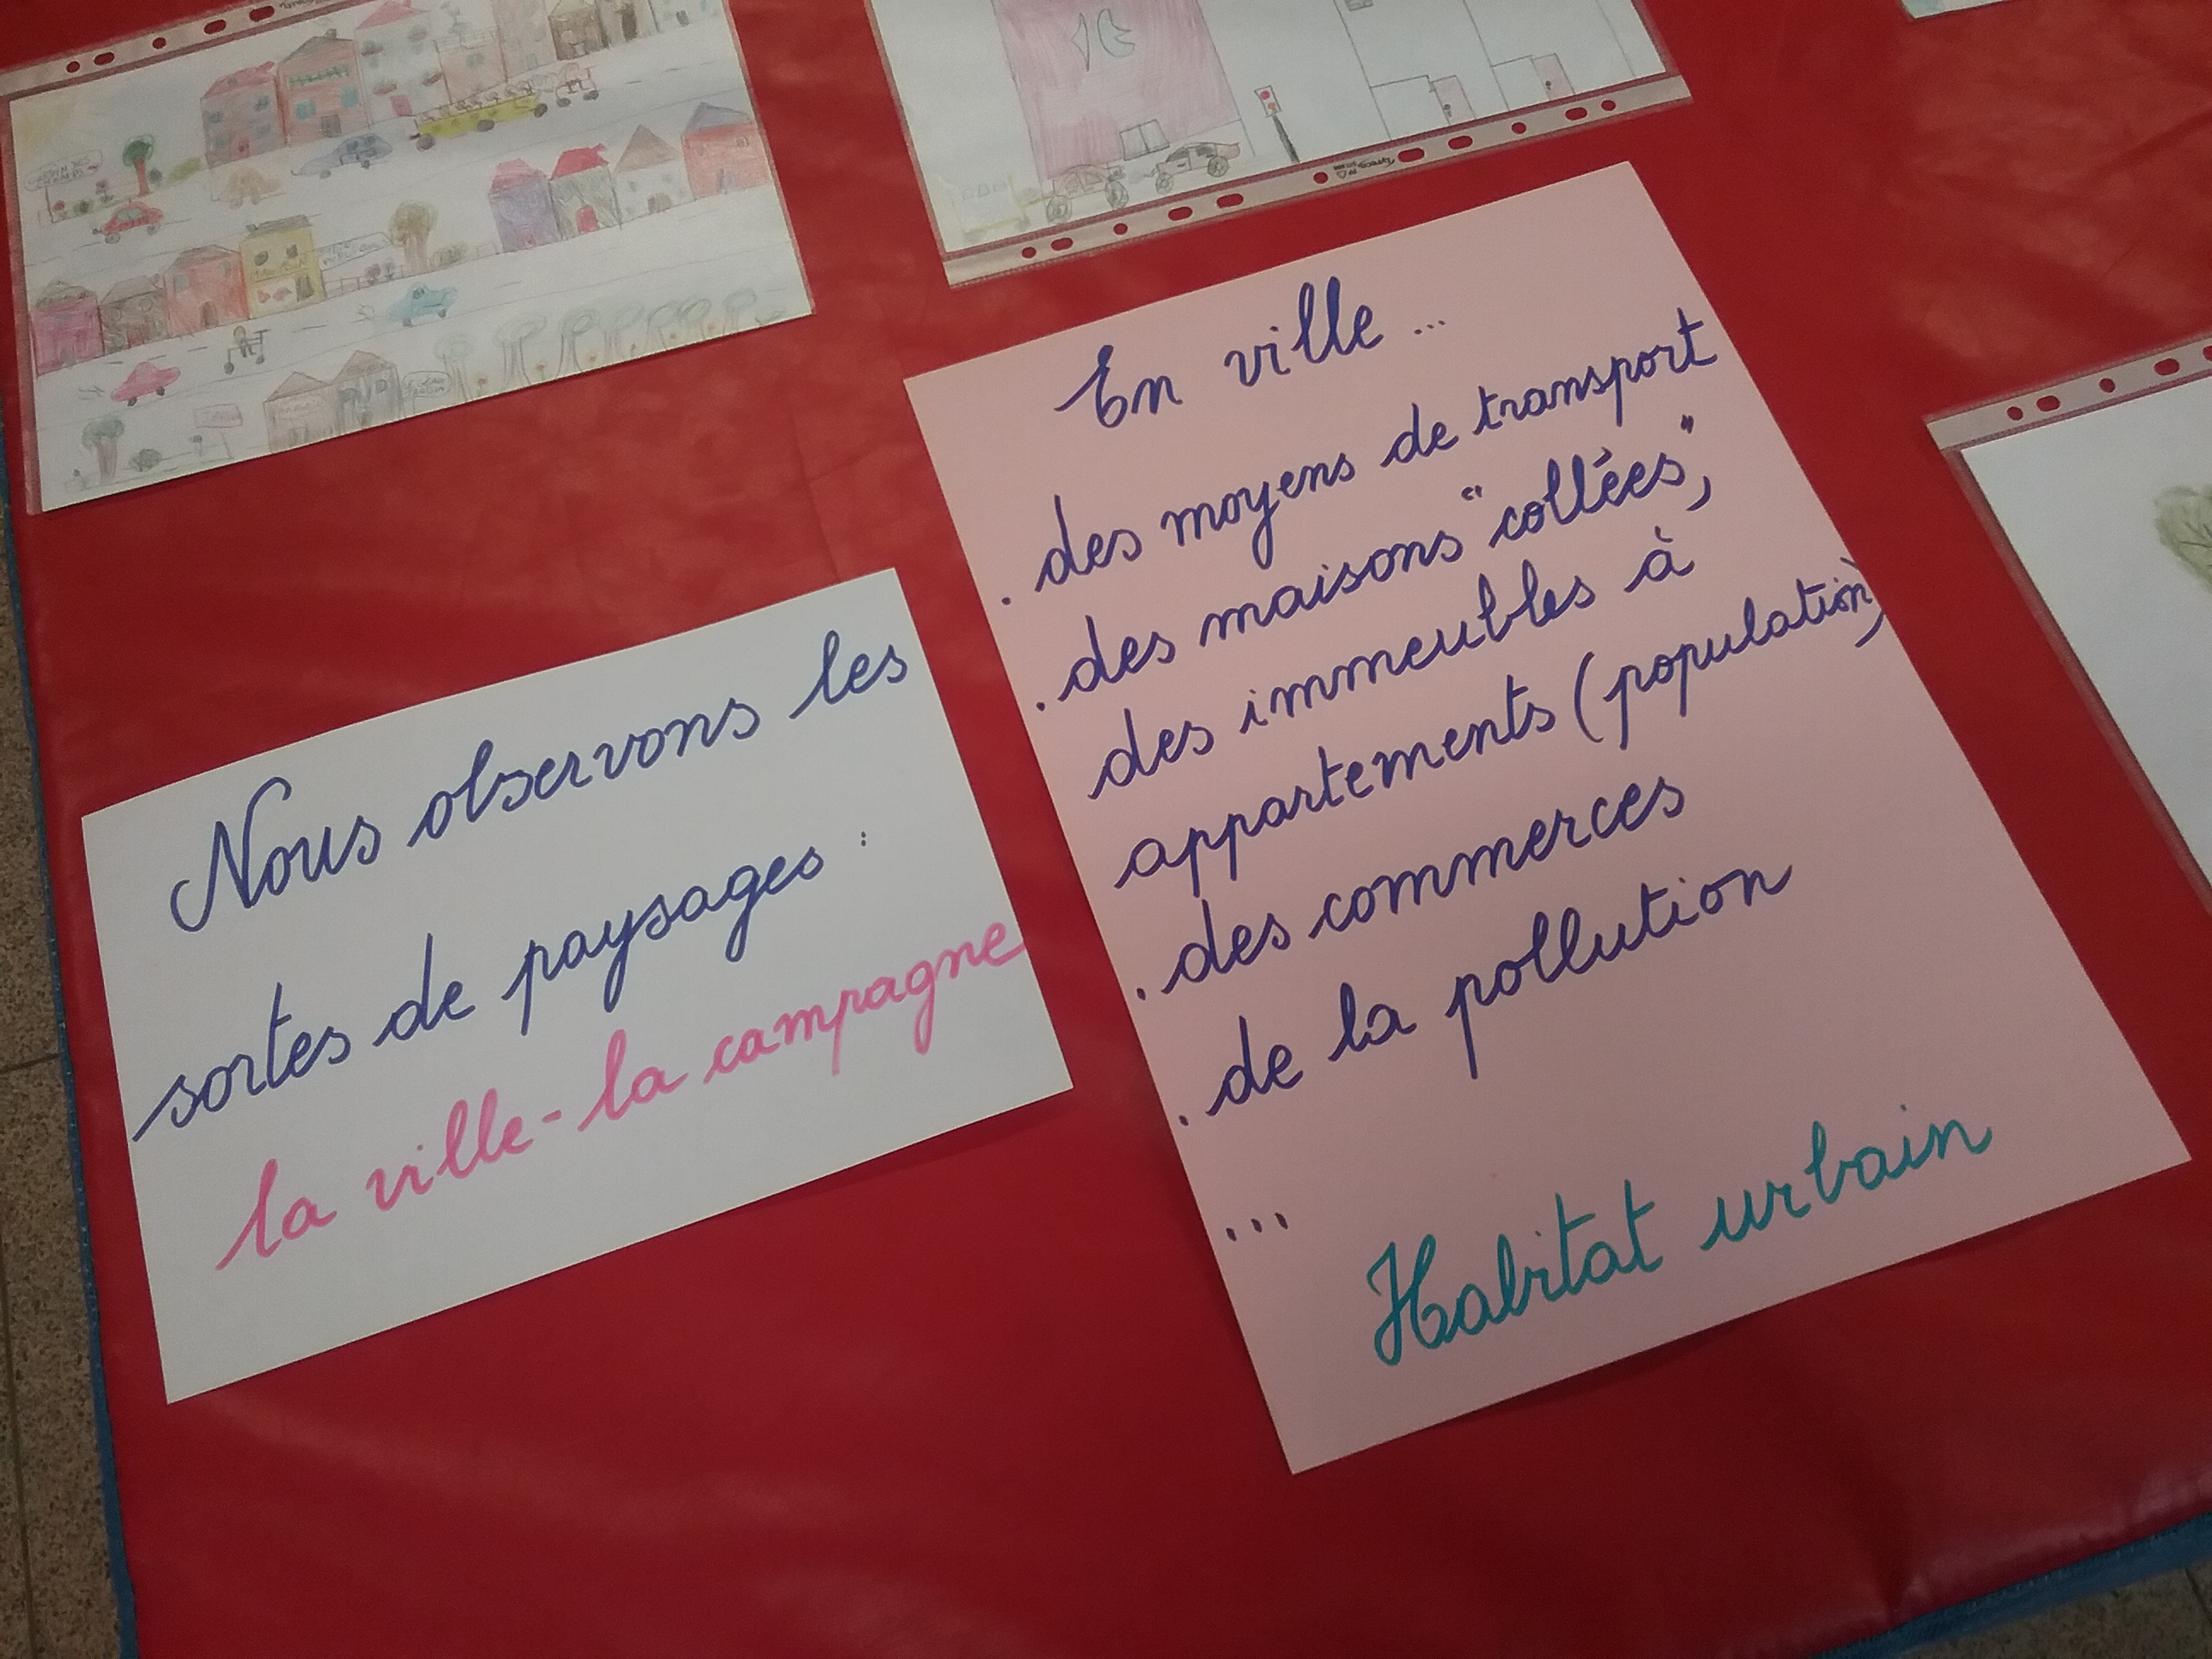 Nous observons les
sortes de paysages :
la ville - la campagne
En ville ...
. des moyens de transport
. des maisons "collées",
des immeubles à
appartements (population)
. des commerces
. de la pollution
...
Habitat urbain